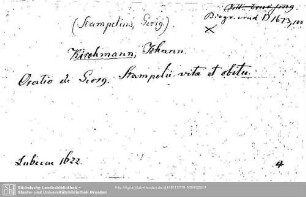 (Stampelius, Georg).
Biogr. erud. D 1673, m
×
Kirchmann, Johann.
Oratio de Georg. Stampelii vita et obitu.
Lubecae 1622.
4
Sächsische Landesbibliothek -
Staats- und Universitätsbibliothek Dresden